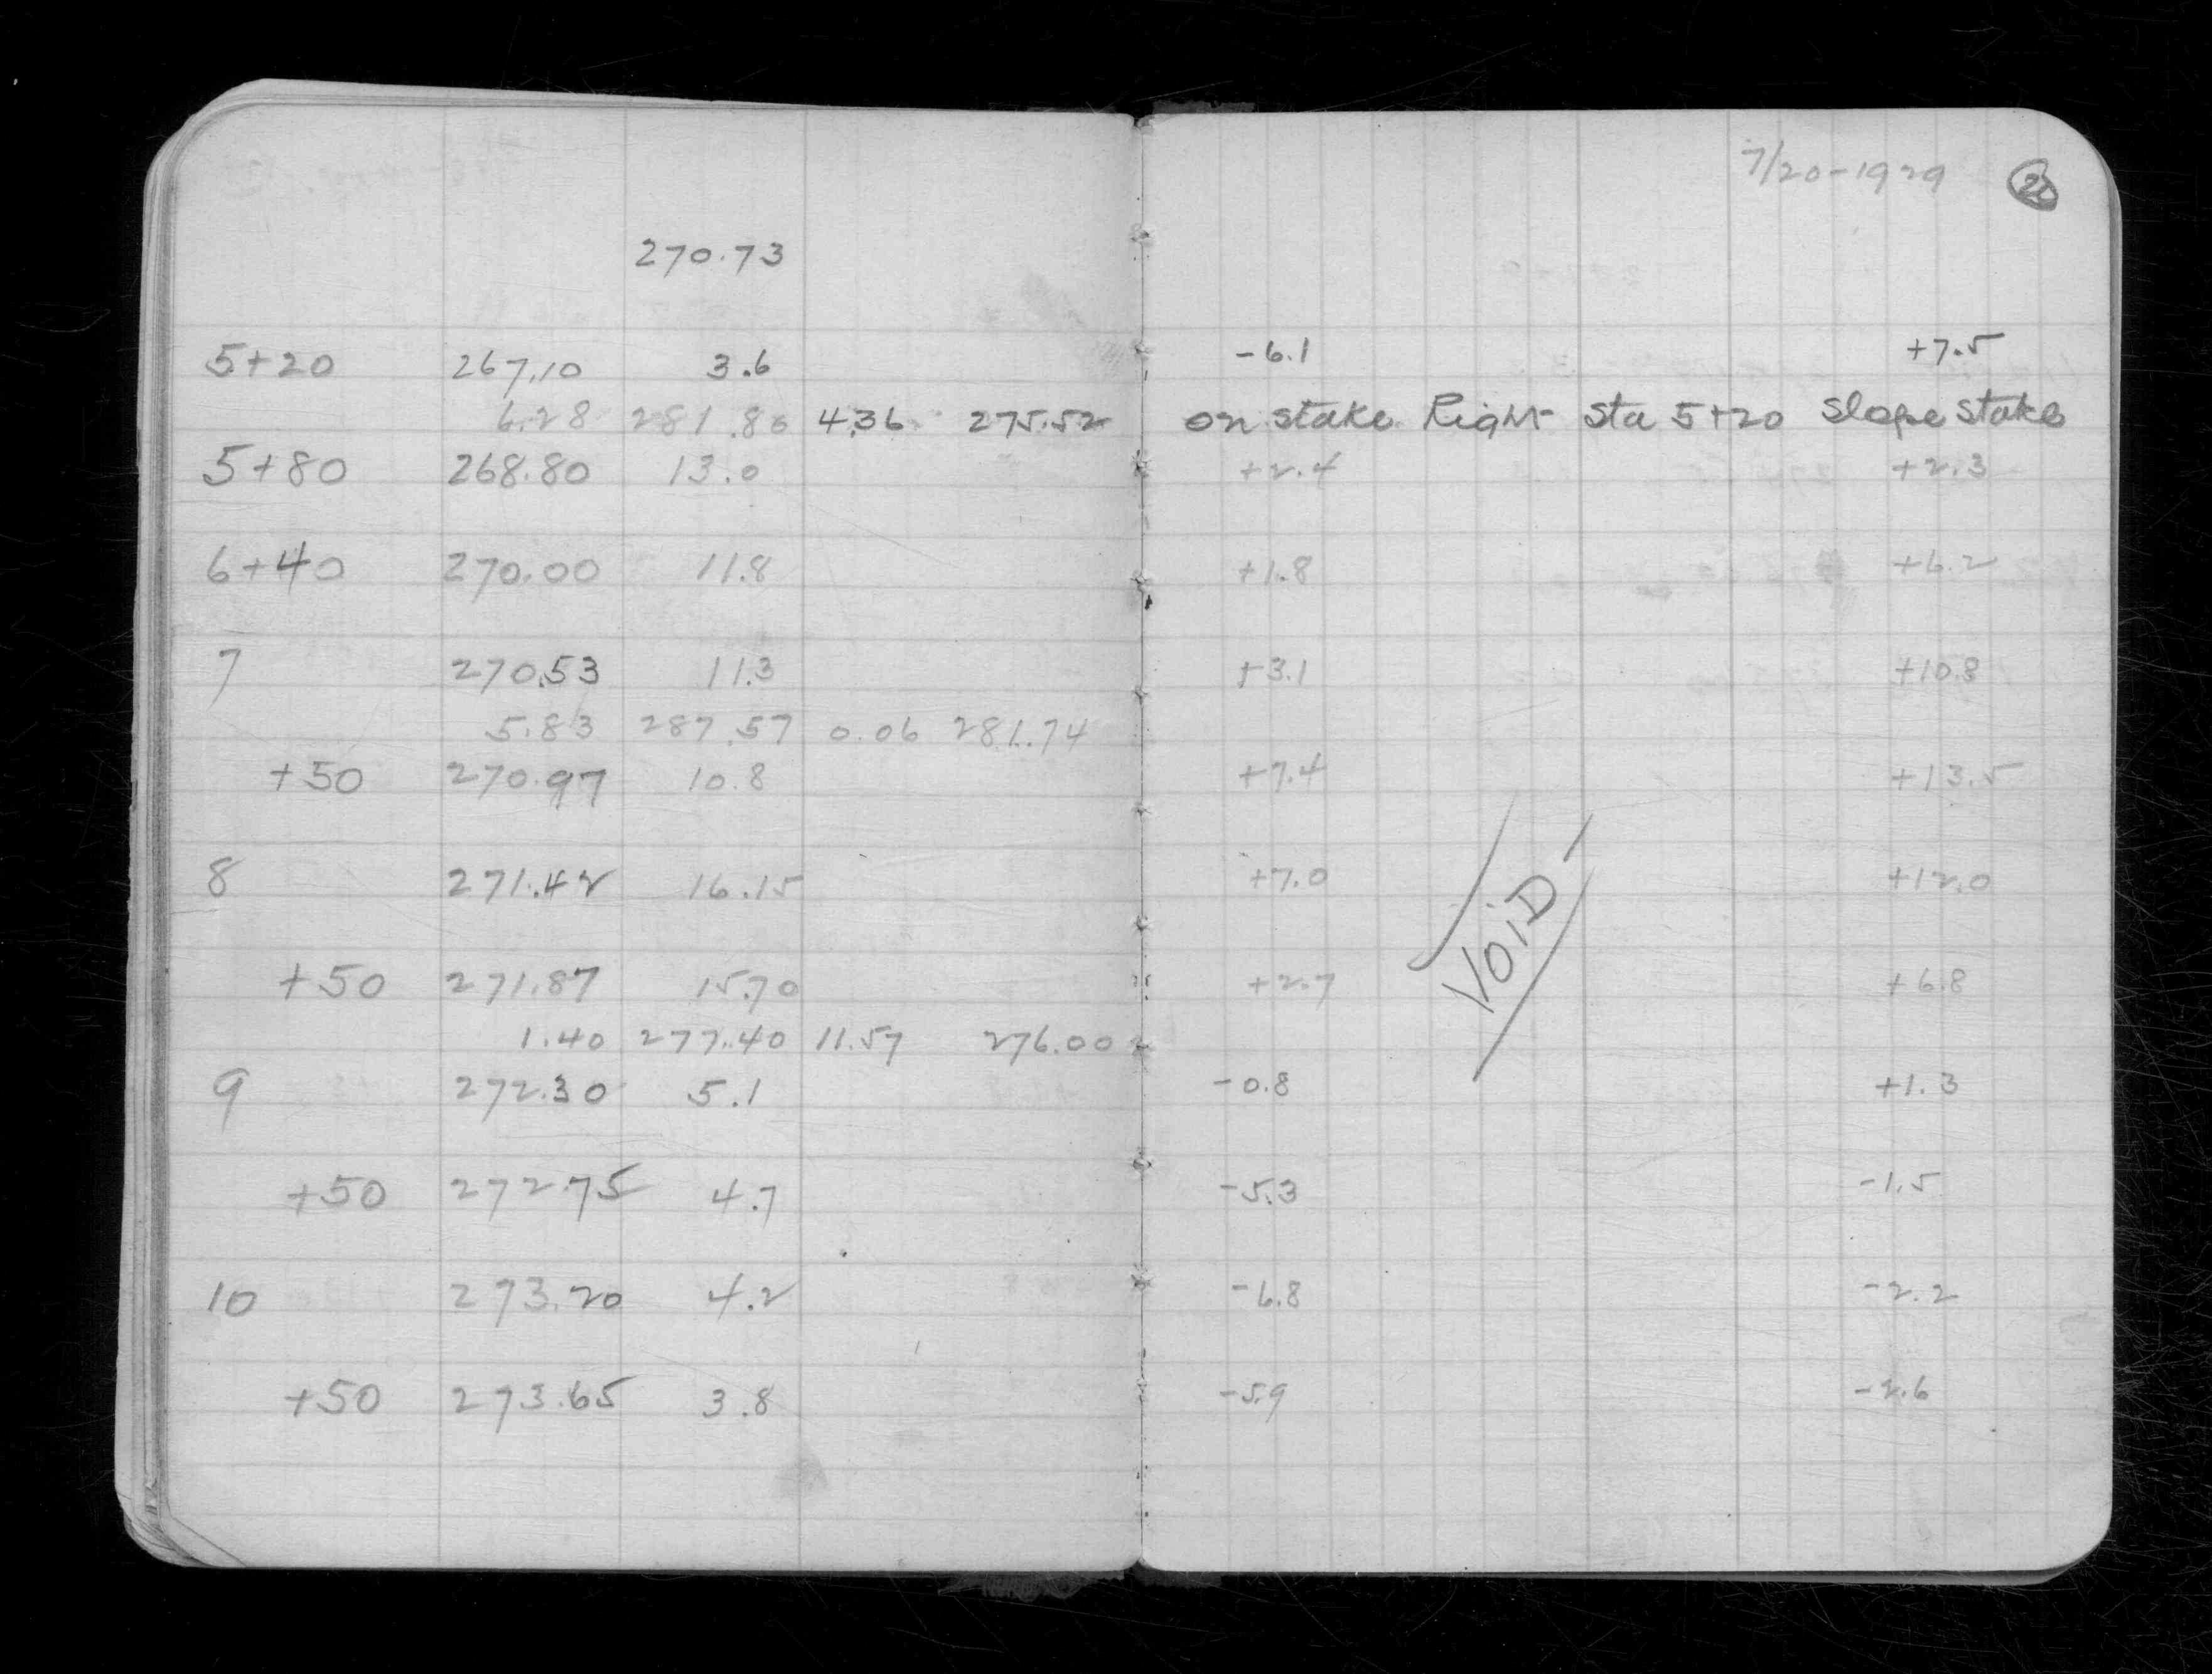 7/20-1929
270.73
5+20 267.10 3.6 -6.1 +7.5
6.28 281.80 4.36 275.52 on stake Right Sta 5+20 Slope stake
5+80 268.80 13.0 +2.4 +2.3
6+40 270.00 11.8 +1.8 +6.2
7 270.53 11.3 +3.1 +10.8
5.83 287.57 0.06 281.74
+50 270.97 10.8 +7.4 +13.5
8 271.42 16.15 +7.0 +12.0
VOID
+50 271.87 15.70 +2.7 +6.8
1.40 277.40 11.57 276.00
9 272.30 5.1 -0.8 +1.3
+50 272.75 4.7 -5.3 -1.5
10 273.20 4.2 -6.8 -2.2
+50 273.65 3.8 -5.9 -2.6